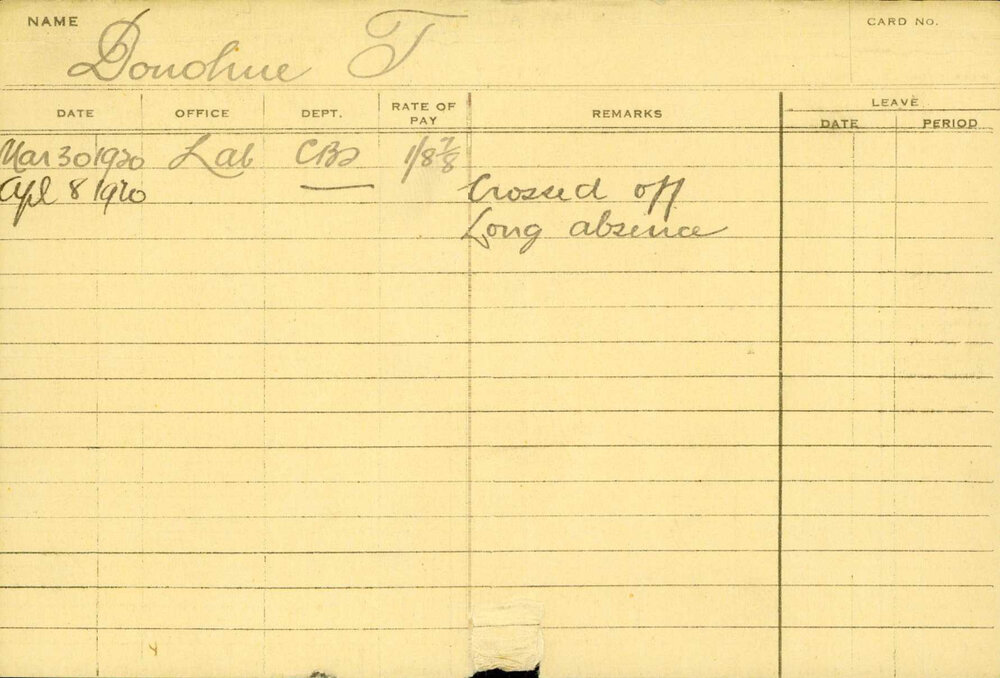 NAME Donohue T CARD No.
DATE OFFICE DEPT. RATE OF PAY REMARKS LEAVE
DATE PERIOD
Mar 30 1920 Lab CBs 1/8 7/8
Apl 8 1920 — Crossed off
Long absence